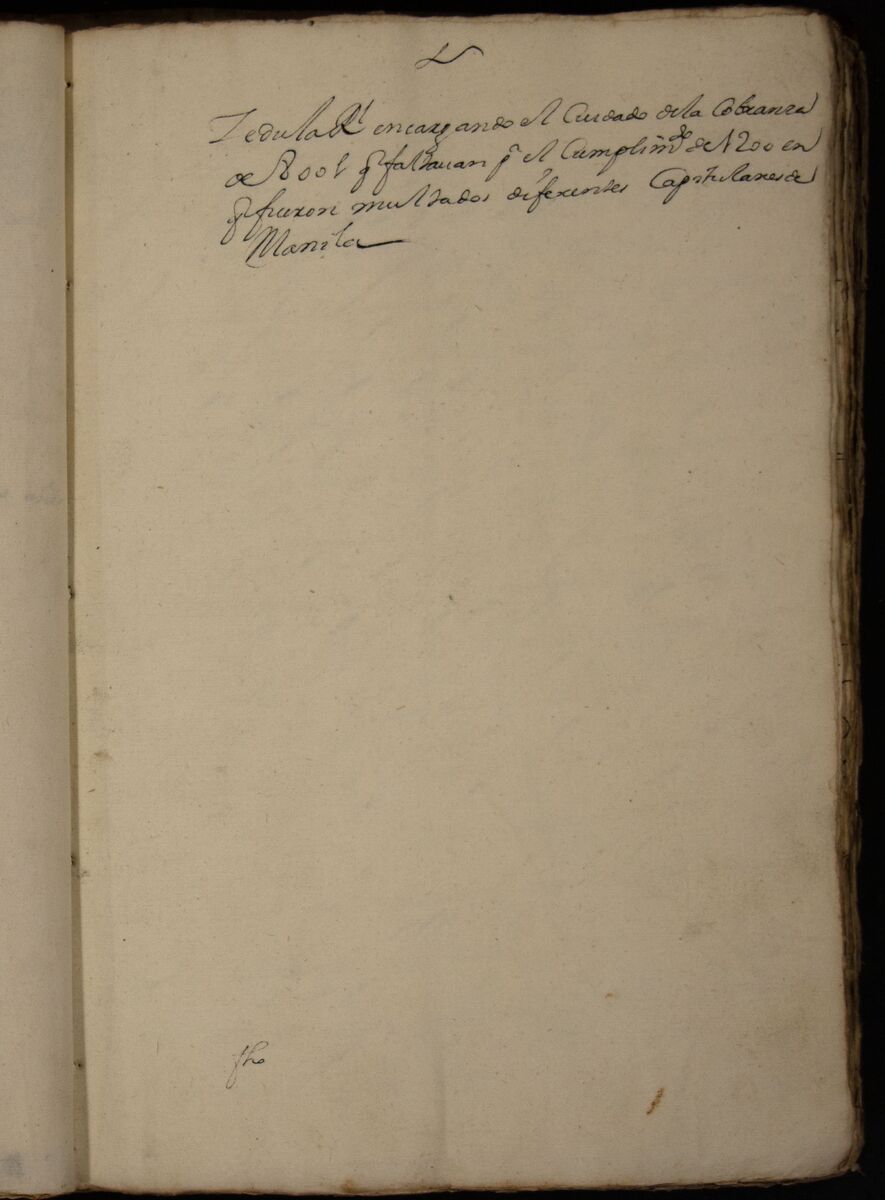 Zedula Rl encargando el Cuidado de la Cobranza
de 8001 q faltauan pa el Cumplimto de 1200 en
q fueron multados diferentes Capitulares de
Manila
fho